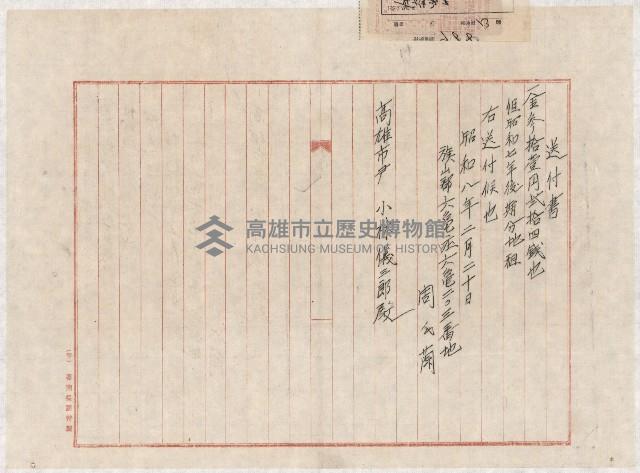 送付書
一金参拾壹円弐拾四銭也
但昭和七年後期分地租
右送付候也
昭和八年二月二十日
旗山郡六亀庄六亀二〇三番地
周氏蘭
高雄市尹 小林儀三郎殿
高雄市立歷史博物館
KAOHSIUNG MUSEUM OF HISTORY